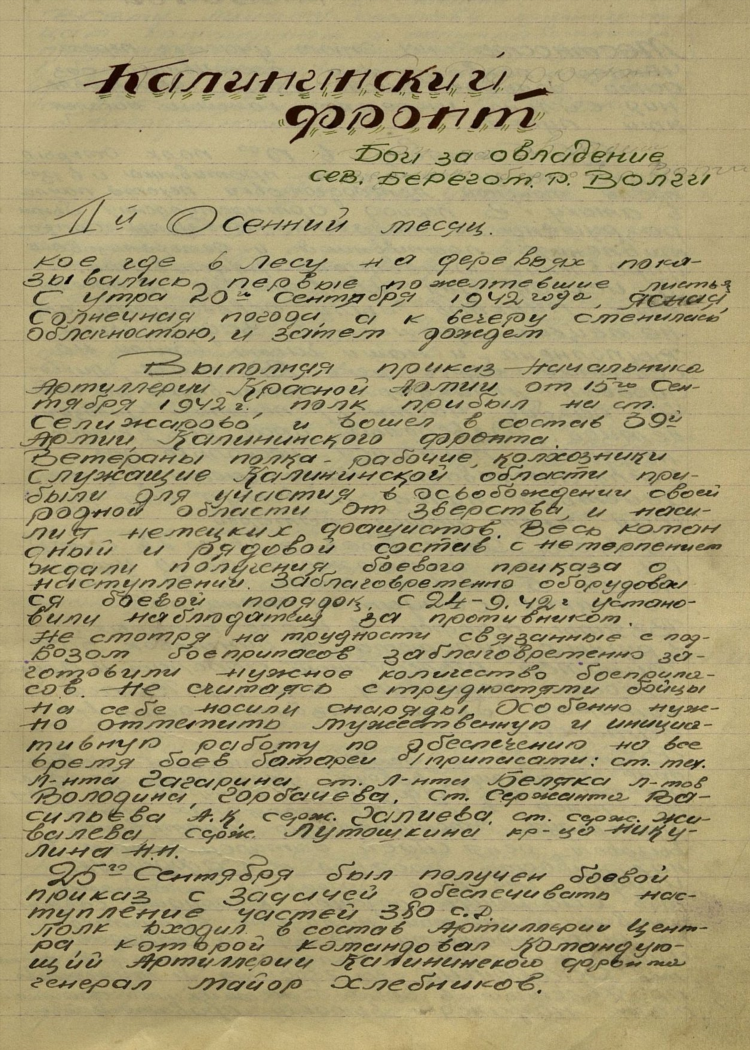 Калининский
фронт
Бои за овладение
сев. Берегом. р. Волги
IIй Осенний месяц.
кое где в лесу на деревьях пока-
зывались первые пожелтевшие листья
С утра 20го Сентября 1942 года, ясная
солнечная погода, а к вечеру сменилась
облачностью, и затем дождем
Выполняя приказ Начальника
Артиллерии Красной Армии от 15го Сен-
тября 1942 г. полк прибыл на ст.
Селижарово, и вошел в состав 39й
Армии, Калининского фронта.
Ветераны полка - рабочие, колхозники
служащие Калининской области при-
были для участия в освобождении своей
родной области от зверства, и наси-
лия немецких фашистов. Весь коман
дный и рядовой состав с нетерпением
ждали получения боевого приказа о
наступлении. Заблаговременно оборудовал
ся боевой порядок, с 24-9.42 г устано-
вили наблюдатещ за противником.
Не смотря на трудности связанные с под-
возом боеприпасов заблаговременно за-
готовили нужное количество боеприпа-
сов. Не считаясь с трудностями бойцы
на себе носили снаряды. Особенно нуж-
но отметить мужественную и инициа-
тивную работу по обеспечению на все
время боев батареи б/припасами: ст. тех.
л-нта Гагарина, ст. л-нта Беляка л-тов
Володина, Горбачева, ст. сержанта Ва-
сильева А.К, серж. Галиева, ст. серж. Жи-
валева серж. Лутошкина кр-ца Нику-
лина Н.Н.
25го Сентября был получен боевой
приказ с задачей обеспечивать нас-
тупление частей 380 с.д.
Полк входил в состав Артиллерии Цент-
ра, которой командовал Командую-
щий Артиллерии Калининского фронта
генерал майор Хлебников.